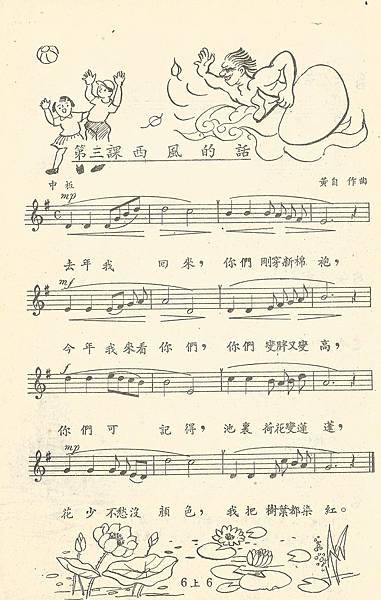 第三課 西風的話
中板 黃自 作曲
mp
去年我 回來， 你們剛穿新棉 袍，
mf
今年我來看 你們， 你們 變胖又變 高，
f
你們可 記得， 池裏 荷花變蓮 蓬，
mp
花少不愁沒 顏色， 我把 樹葉都染 紅。
6上6